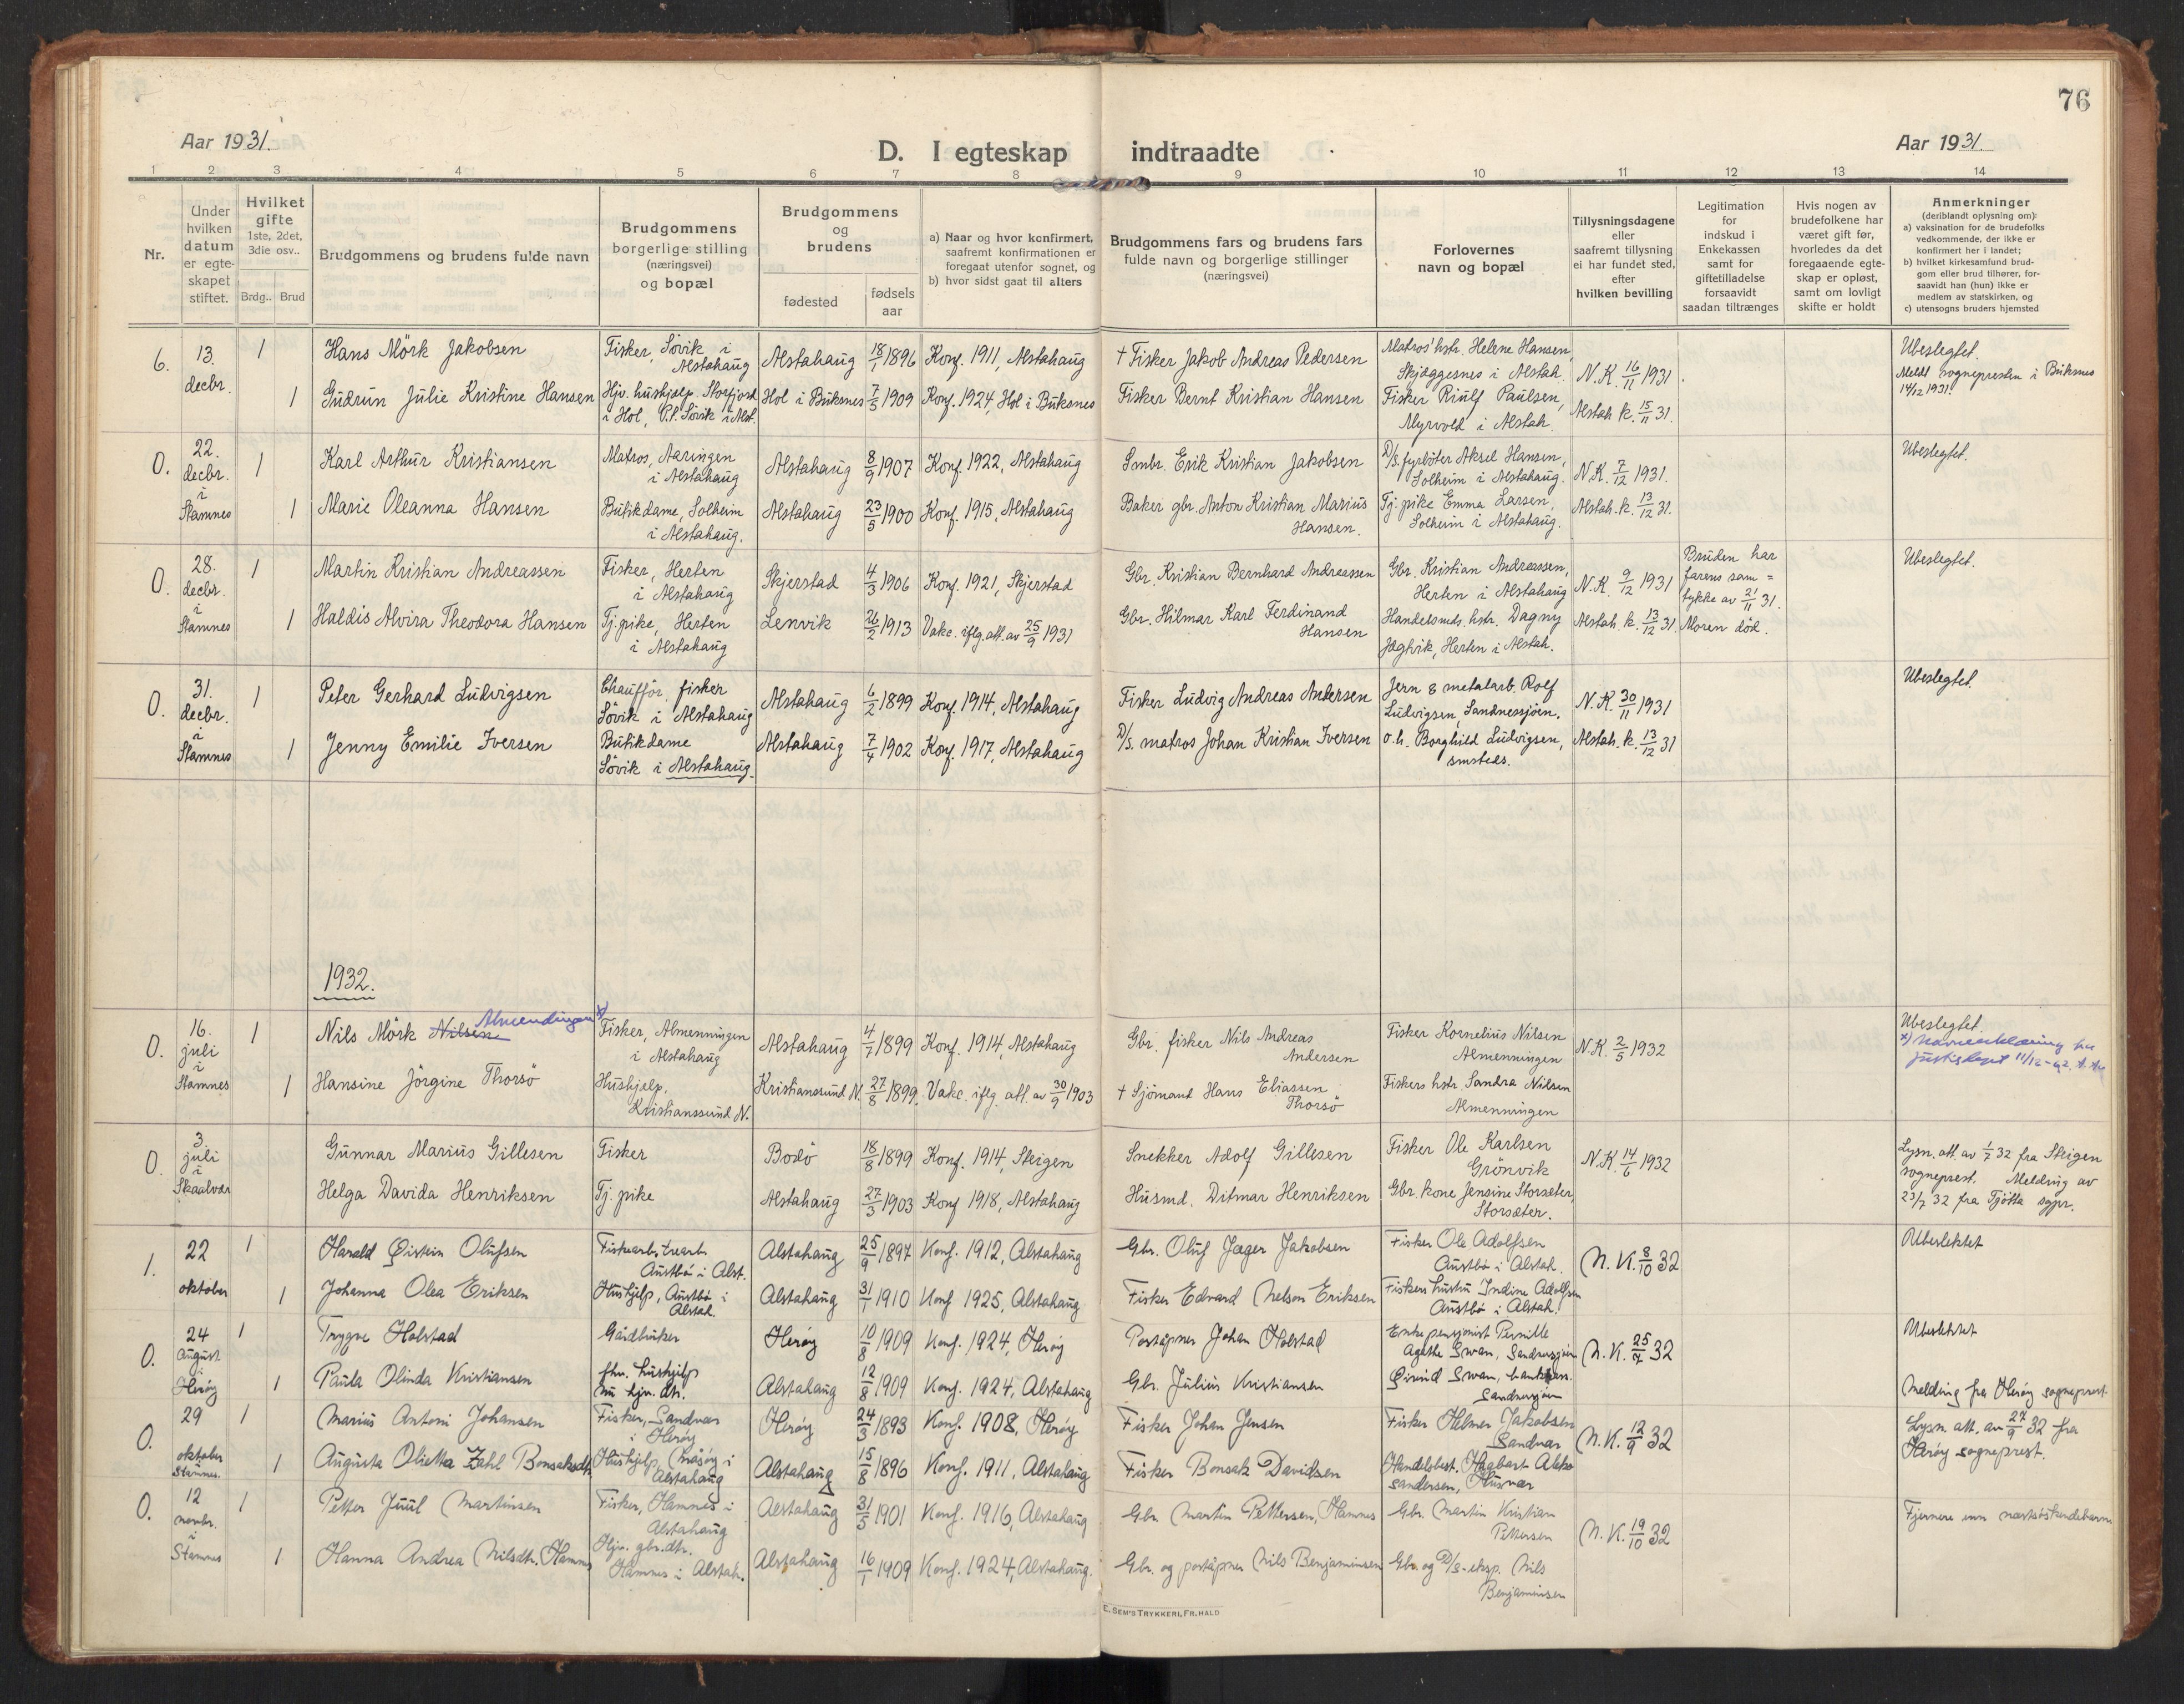 76
Aar 1931.
D. I egteskap indtraadte
Aar 1931.
1 2 3 4 5 6 7 8 9 10 11 12 13 14
Nr.
Under hvilken datum er egteskapet stiftet.
Hvilket gifte 1ste, 2det, 3die osv..
Brdg.. Brud
Brudgommens og brudens fulde navn
Brudgommens borgerlige stilling (næringsvei) og bopæl
Brudgommens og brudens
fødested
fødsels aar
a) Naar og hvor konfirmert, saafremt konfirmationen er foregaat utenfor sognet, og
b) hvor sidst gaat til alters
Brudgommens fars og brudens fars fulde navn og borgerlige stillinger (næringsvei)
Forlovernes navn og bopæl
Tillysningsdagene eller saafremt tillysning ei har fundet sted, efter hvilken bevilling
Legitimation for indskud i Enkekassen samt for giftetilladelse forsaavidt saadan tiltrænges
Hvis nogen av brudefolkene har været gift før, hvorledes da det foregaaende egteskap er opløst, samt om lovligt skifte er holdt
Anmerkninger
(deriblandt oplysning om):
a) vaksination for de brudefolks vedkommende, der ikke er konfirmert her i landet;
b) hvilket kirkesamfund brudgom eller brud tilhører, forsaavidt han (hun) ikke er medlem av statskirken, og
c) utensogns bruders hjemsted
6. 13. decbr. 1 Hans Mörk Jakobsen Fisker, Sövik i Alstahaug Alstahaug 18/1 1896 Konf. 1911, Alstahaug † Fisker Jakob Andreas Pedersen Matros' hstr. Helene Hansen, Skjæggesnes i Alstah. N.K. 16/11 1931. Ubeslegtet. Meldt sognepresten i Buksnes 14/12 1931.
1 Gudrun Julie Kristine Hansen Hjv. hushjelp. Storfjord i Hol, P.t. Sövik i Alst. Hol i Buksnes 7/5 1909 Konf. 1924, Hol i Buksnes Fisker Bernt Kristian Hansen Fisker Riulf Paulsen, Myrvold i Alstah. Alstah k. 15/11 31.
0. 22. decbr. i Stamnes 1 Karl Arthur Kristiansen Matros, Aaringen i Alstahaug Alstahaug 8/9 1907 Konf. 1922, Alstahaug Smbr. Erik Kristian Jakobsen D/S. fyrböter Aksel Hansen, Solheim i Alstahaug. N.K. 7/12 1931. Ubeslegtet.
1 Marie Oleanna Hansen Butikdame, Solheim i Alstahaug. Alstahaug 23/5 1900 Konf. 1915, Alstahaug Baker gbr. Anton Kristian Marius Hansen. Tj. pike Emma Larsen, Solheim i Alstahaug. Alstah. k. 13/12 31.
0. 28. decbr. i Stamnes 1 Martin Kristian Andreassen Fisker, Herten i Alstahaug Skjerstad 4/3 1906 Konf. 1921, Skjerstad Gbr. Kristian Bernhard Andreassen Gbr. Kristian Andreassen, Herten i Alstahaug N.K. 9/12 1931 Bruden har farens samtykke av 21/11 31. Moren död. Ubeslegtet.
1 Haldis Alvira Theodora Hansen Tj. pike, Herten i Alstahaug Lenvik 26/2 1913 Vakc. iflg. att. av 25/9 1931 Gbr. Hilmar Karl Ferdinand Hansen Handelsmds. hstr. Dagny Jæghvik, Herten i Alstah. Alstah. k. 13/12 31.
0. 31. decbr. i Stamnes 1 Peter Gerhard Ludvigsen Chaufför, fisker Sövik i Alstahaug Alstahaug 6/2 1899 Konf. 1914, Alstahaug Fisker Ludvig Andreas Andersen Jern & metalarb. Rolf Ludvigsen, Sandnessjöen. N.K. 30/11 1931 Ubeslegtet.
1 Jenny Emilie Iversen Butikdame Sövik i Alstahaug. Alstahaug 7/4 1902 Konf. 1917, Alstahaug D/S. matros Johan Kristian Iversen o.h. Borghild Ludvigsen, smsteds. Alstah. k. 13/12 31
1932.
0. 16. juli i Stamnes 1 Nils Mörk Nilsen Almendingen x) Fisker, Almenningen i Alstahaug Alstahaug 4/7 1899 Konf. 1914, Alstahaug Gbr. fisker Nils Andreas Andersen Fisker Kornelius Nilsen Almenningen N.K. 2/5 1932 Ubeslegtet.
1 Hansine Jörgine Thorsö Hushjelp, Kristianssund N. Kristianssund N. 27/8 1899. Vakc. iflg. att. av 30/9 1903 † Sjömand Hans Eliassen Thorsö Fiskers hstr. Sandra Nilsen Almenningen
0. 3. juli i Skaalvær Gunnar Marius Gillesen Fisker Bodö 18/8 1899 Konf. 1914, Steigen Snekker Adolf Gillesen Fisker Ole Karlsen Grönvik N.K. 14/6 1932 Lysn. att. av 1/7 32 fra Steigen sogneprest. Melding av 23/7 32 fra Tjötta sgpr.
Helga Davida Henriksen Tj. pike Alstahaug 27/3 1903 Konf 1918, Alstahaug Husmd. Ditmar Henriksen Gbr. kone Jensine Storsæter, Storsæter.
1. 22 oktober 1 Harald Øistein Olufsen Austbø i Alst. Alstahaug 25/9 1897 Konf. 1912, Alstahaug Gbr. Oluf Jæger Jakobsen Fisker Ole Adolfsen Austbø i Alstah. N.K. 8/10 32 Ubeslektet
1 Johanna Olea Eriksen Hushjelp, Austbø i Alstah. Alstahaug 31/1 1910 Konf 1925, Alstahaug Fisker Edvard Nelson Eriksen Fiskers hustru Indine Adolfsen Austbø i Alstah.
0. 24 august i Herøy 1 Trygve Holstad Gårdbruker Herøy 10/8 1909 Konf. 1924, Herøy Poståpner Johan Holstad Enkepensjonist Pernille Agathe Swan, Sandnessjøen N.K. 25/7 32 Ubeslektet
1 Paula Olinda Kristiansen fhv. hushjelp nu hjv. dtr. Alstahaug 12/8 1909 Konf. 1924, Alstahaug Gbr. Julius Kristiansen Øivind Swan, bankkass. Sandnessjøen Melding fra Herøy sogneprest.
0. 29 oktober Stamnes. 1 Marius Antoni Johansen Fisker, Sandvær i Herøy Herøy 24/3 1893 Konf. 1908, Herøy Fisker Johan Jensen Fisker Helmer Jakobsen Sandvær N.K. 12/9 32 Lysn. att. av 27/9 32 fra Herøy sogneprest.
1 Augusta Olietta Zahl Bonsaksdtr. Hushjelp, Måsøy i Alstahaug Alstahaug 15/8 1896 Konf. 1911, Alstahaug Fisker Bonsak Davidsen Handelsbest. Hagbart Aleksandersen, Husvær
0. 12 novbr. i Stamnes 1 Petter Juul Martinsen Fisker, Hamnes i Alstahaug Alstahaug 31/5 1901 Konf. 1916, Alstahaug Gbr. Martin Pettersen, Hamnes Gbr. Martin Kristian Pettersen N.K. 19/10 32 Fjernere enn næstsøskendebarn
1 Hanna Andrea Nilsdtr. Hamnes Hjv. gbr.dtr. Hamnes i Alstah. Alstahaug 16/1 1909 Konf. 1924, Alstahaug. Gbr. og poståpner Nils Benjaminsen Gbr. og D/S-eksp. Nils Benjaminsen
E. SEM'S TRYKKERI, FR. HALD